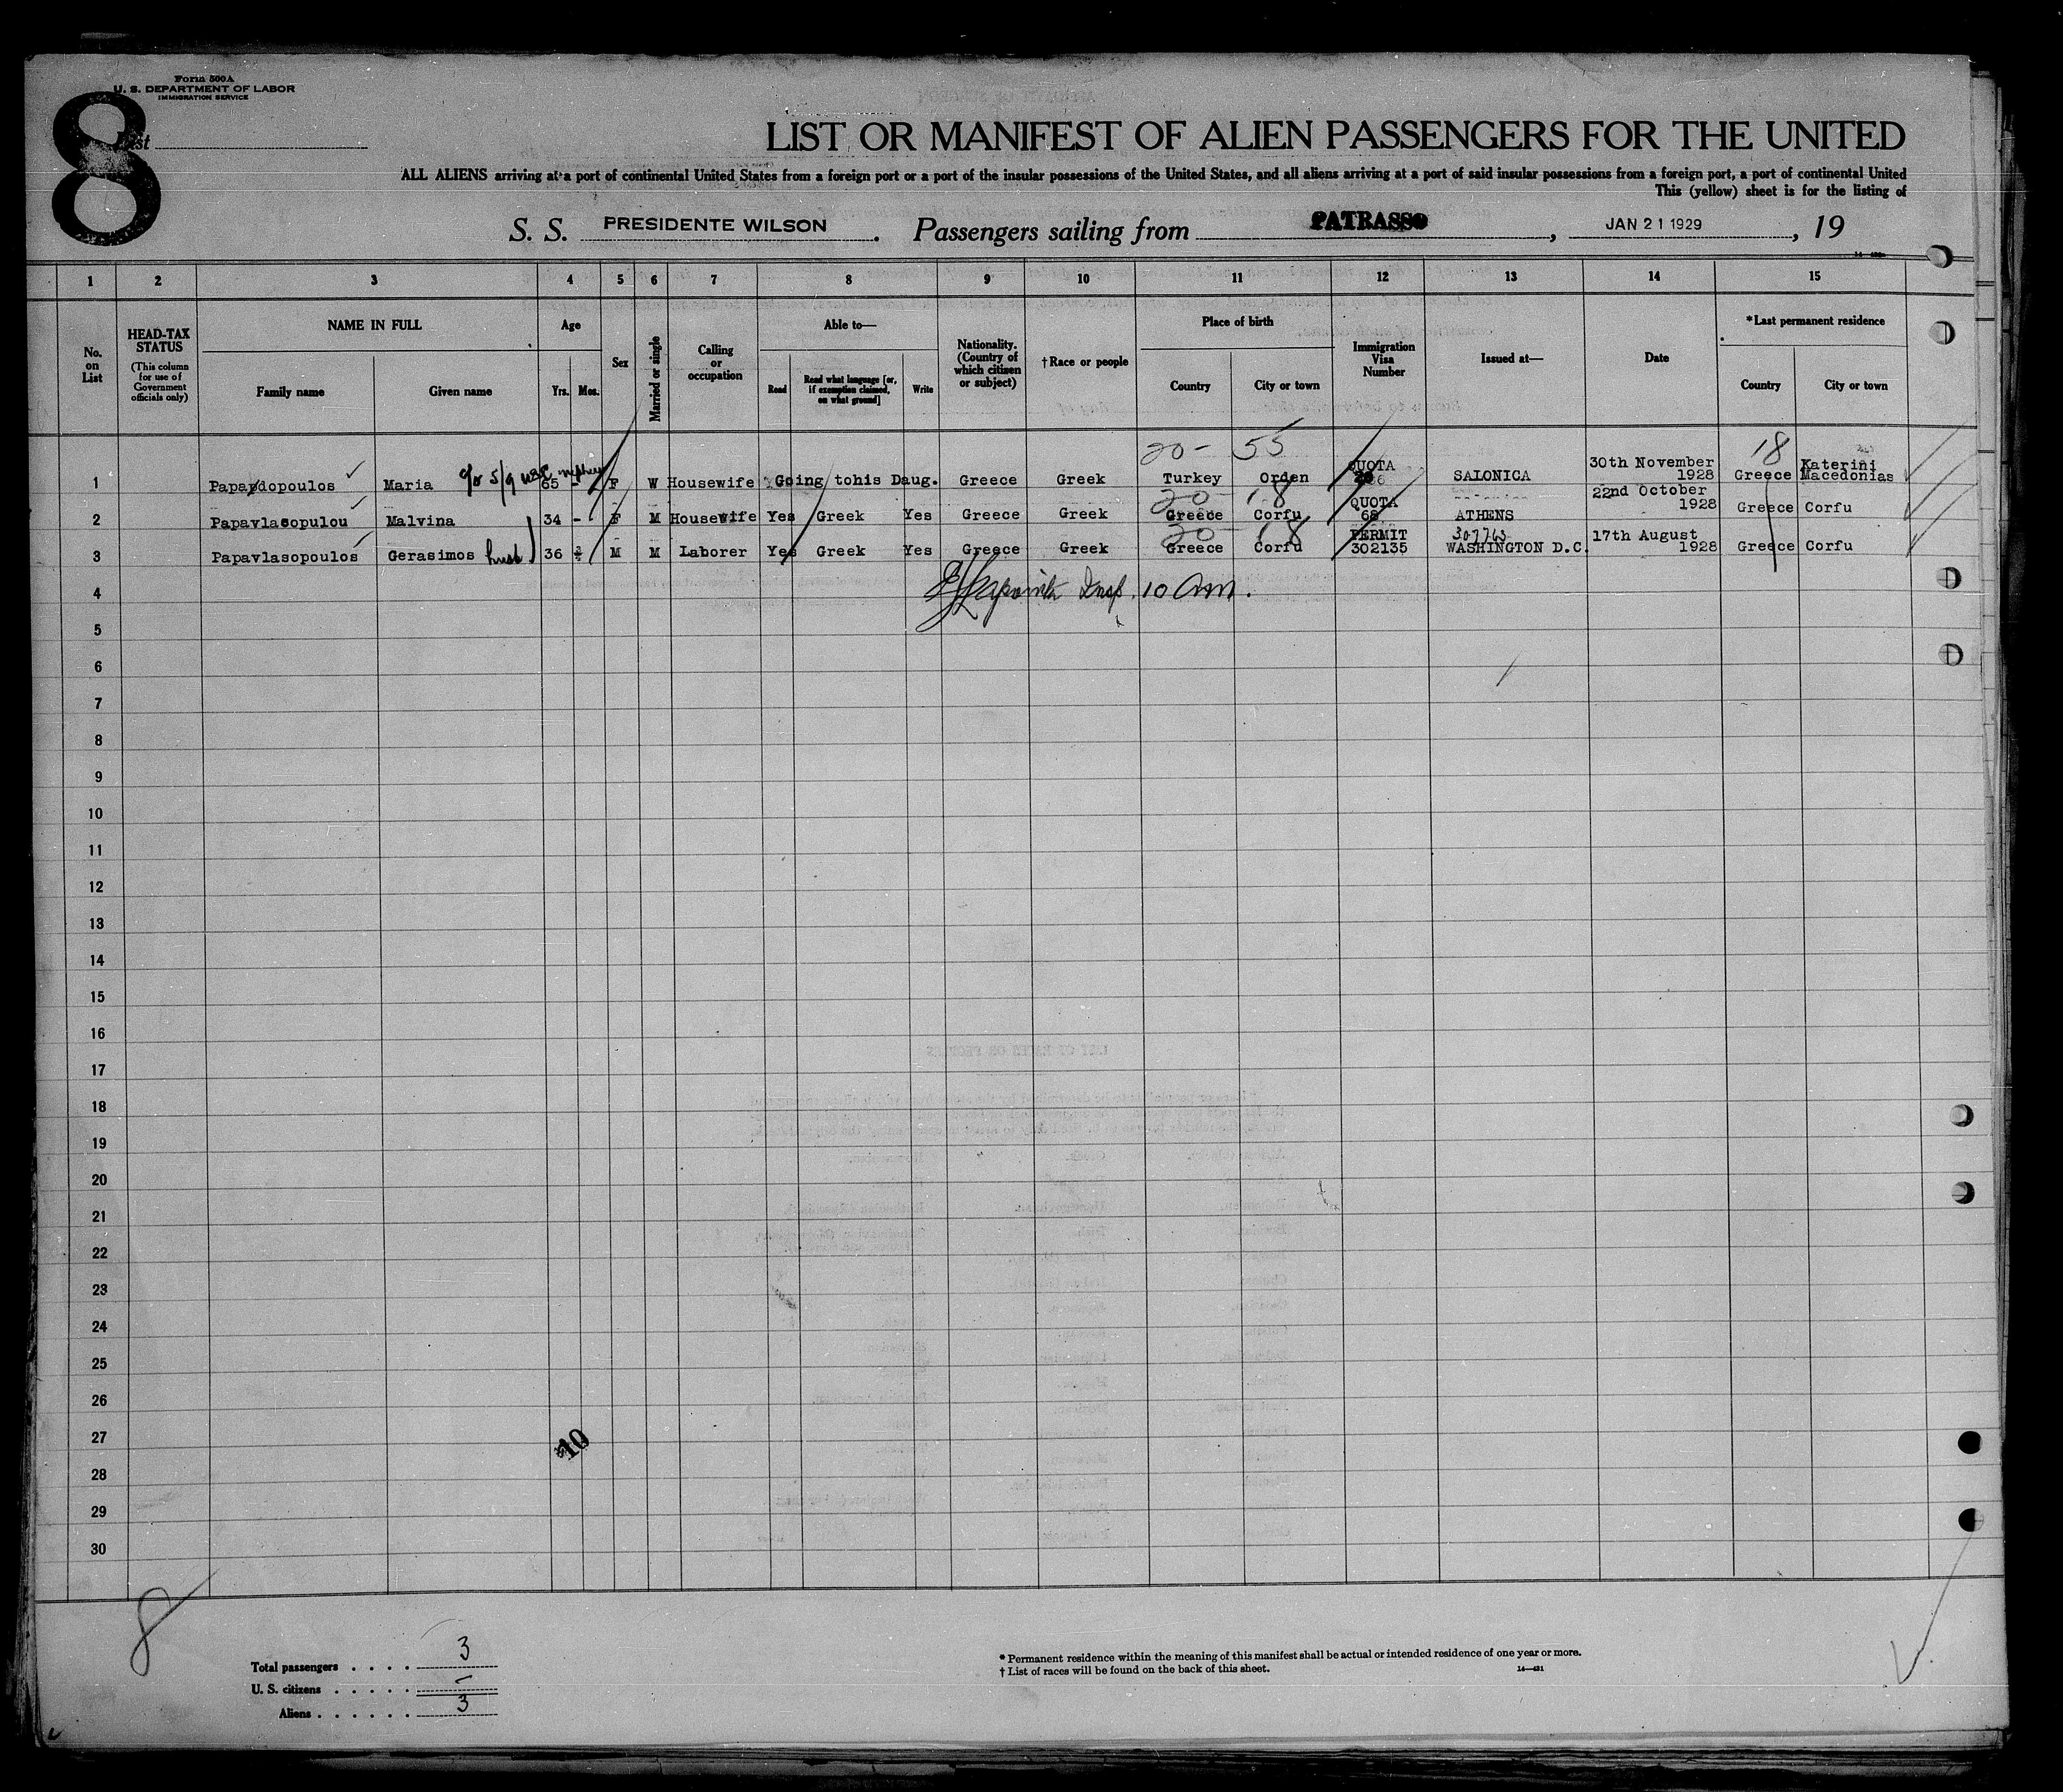 Form 500A
U. S. DEPARTMENT OF LABOR
IMMIGRATION SERVICE
8
List
LIST OR MANIFEST OF ALIEN PASSENGERS FOR THE UNITED
ALL ALIENS arriving at a port of continental United States from a foreign port or a port of the insular possessions of the United States, and all aliens arriving at a port of said insular possessions from a foreign port, a port of continental United
This (yellow) sheet is for the listing of
S. S. PRESIDENTE WILSON. Passengers sailing from PATRASSO, JAN 21 1929, 19
1 2 3 4 5 6 7 8 9 10 11 12 13 14 15
No. on List
HEAD-TAX STATUS
(This column for use of Government officials only)
NAME IN FULL
Family name Given name
Age
Yrs. Mos.
Sex
Married or single
Calling or occupation
Able to—
Read Read what language [or, if exemption claimed, on what ground] Write
Nationality. (Country of which citizen or subject)
†Race or people
Place of birth
Country City or town
Immigration Visa Number
Issued at—
Date
*Last permanent residence
Country City or town
20- 55 18
1 Papadopoulos Maria 65 - F W Housewife Going tohis Daug. Greece Greek Turkey Orden QUOTA SALONICA 30th November 1928 Greece Katerini Macedonias
20- 18
2 Papavlasopulou Malvina 34 - F M Housewife Yes Greek Yes Greece Greek Greece Corfu QUOTA 68 ATHENS 22nd October 1928 Greece Corfu
20- 18
3 Papavlasopoulos Gerasimos husb 36 M M Laborer Yes Greek Yes Greece Greek Greece Corfu PERMIT 302135 307765 WASHINGTON D.C. 17th August 1928 Greece Corfu
4 Insp. 10 am.
5
6
7
8
9
10
11
12
13
14
15
16
17
18
19
20
21
22
23
24
25
26
27
28
29
30
10
8
Total passengers . . . . 3
U. S. citizens . . . . . -
Aliens . . . . . . 3
* Permanent residence within the meaning of this manifest shall be actual or intended residence of one year or more.
† List of races will be found on the back of this sheet. 14—431